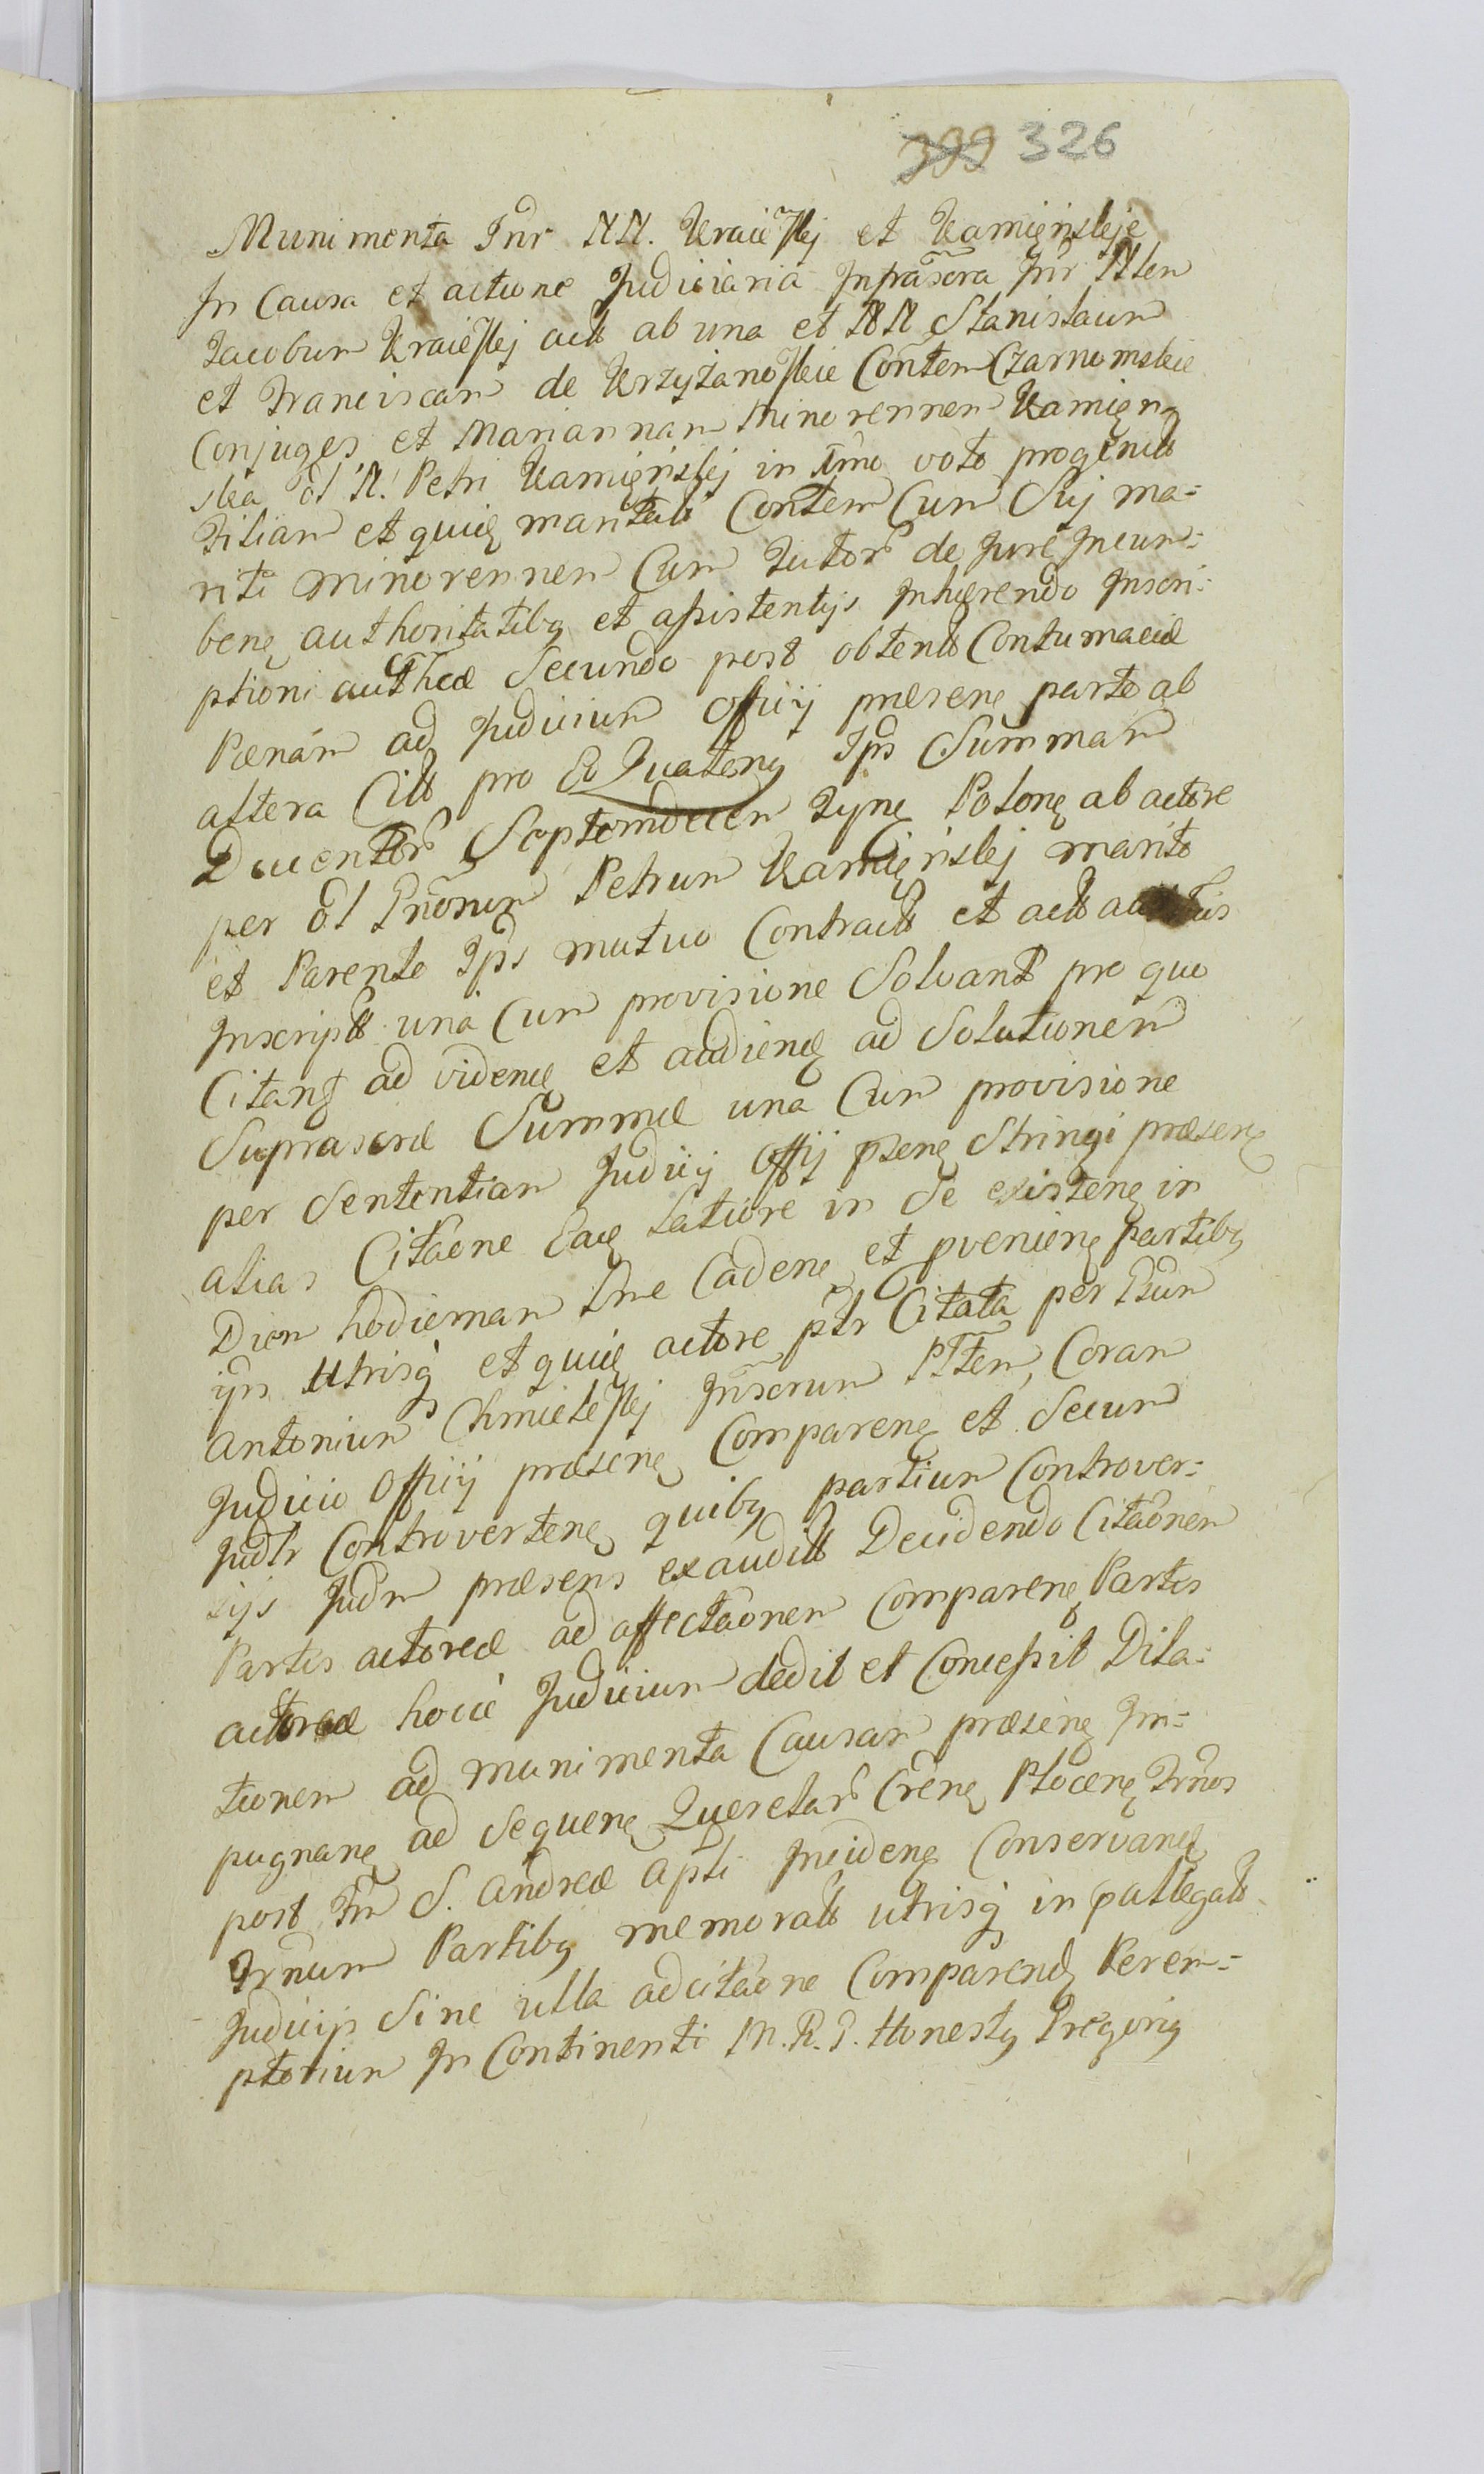 399 326
Munimenta Inr NN. Kraieskj et Kamięńskje
In Causa et actione Judiciaria Infrascra Inr Nlem
Jacobum Kraieskj actt ab una et NN Stanislaum
et Franciscam de Krzyżanoskie Contem Czarnomskie
Conjuges et Mariannam Minorennem Kamięn
ska ol N. Petri Kamięńskj in Imo voto progenitt
Filiam et quidę maritatt Contem Cum Sui ma=
riti minorennem Cum Tutor de Jure Incum=
benę authoritatibq et assistentijs Inhęrendo Inscri=
ptioni authcæ Secundo post obtentt Contumaciæ
Pœnam ad Judicium Officij præsenę parte ab
altera Citt pro Eo Quatenq Ips Summam
Ducentor Septemdecem Tynę Polonę ab actore
per ol Gnosum Petrum Kamięńskj marito
et Parente Ips mutuo Contractt et actt
Inscriptt una Cum provisione Solvant pro quo
Citant ad videndę et audiendę ad Solutionem
Suprascræ Summæ una Cum provisione
per Sententiam Judicij Offij psenę Stringi præsenę
alias Citaone Eadę Latiore in Se existenę in
Diem hodiernam Irne Cadenę et pvenienę partibq
ijs Utrisq et quidę actore ptr Citata per Gsum
Antonium Chmieleskj Inscrum Pltem, Coram
Judicio Officij præsenę Comparenę et Secum
Judtr Controvertenę quibq partium Controver=
sijs Judm præsens exauditt Decidendo Citaonem
Partis actoreæ ad affectaonem Comparenę Partis
actoreæ hocce Judicium dedit et Concessit Dila=
tionem ad munimenta Causam præsenę Im=
pugnanę ad Sequenę Querelar Crenę Plocenę Trnos
post Fm S. Andreæ Apli Incidenę Conservandę
Trnum Partibq memoratt utrisq in patlegatt
Judicijs Sine ulla adcitaone Comparendę Perem=
ptorium In Continenti M. R. P. Honestq Gregoriq